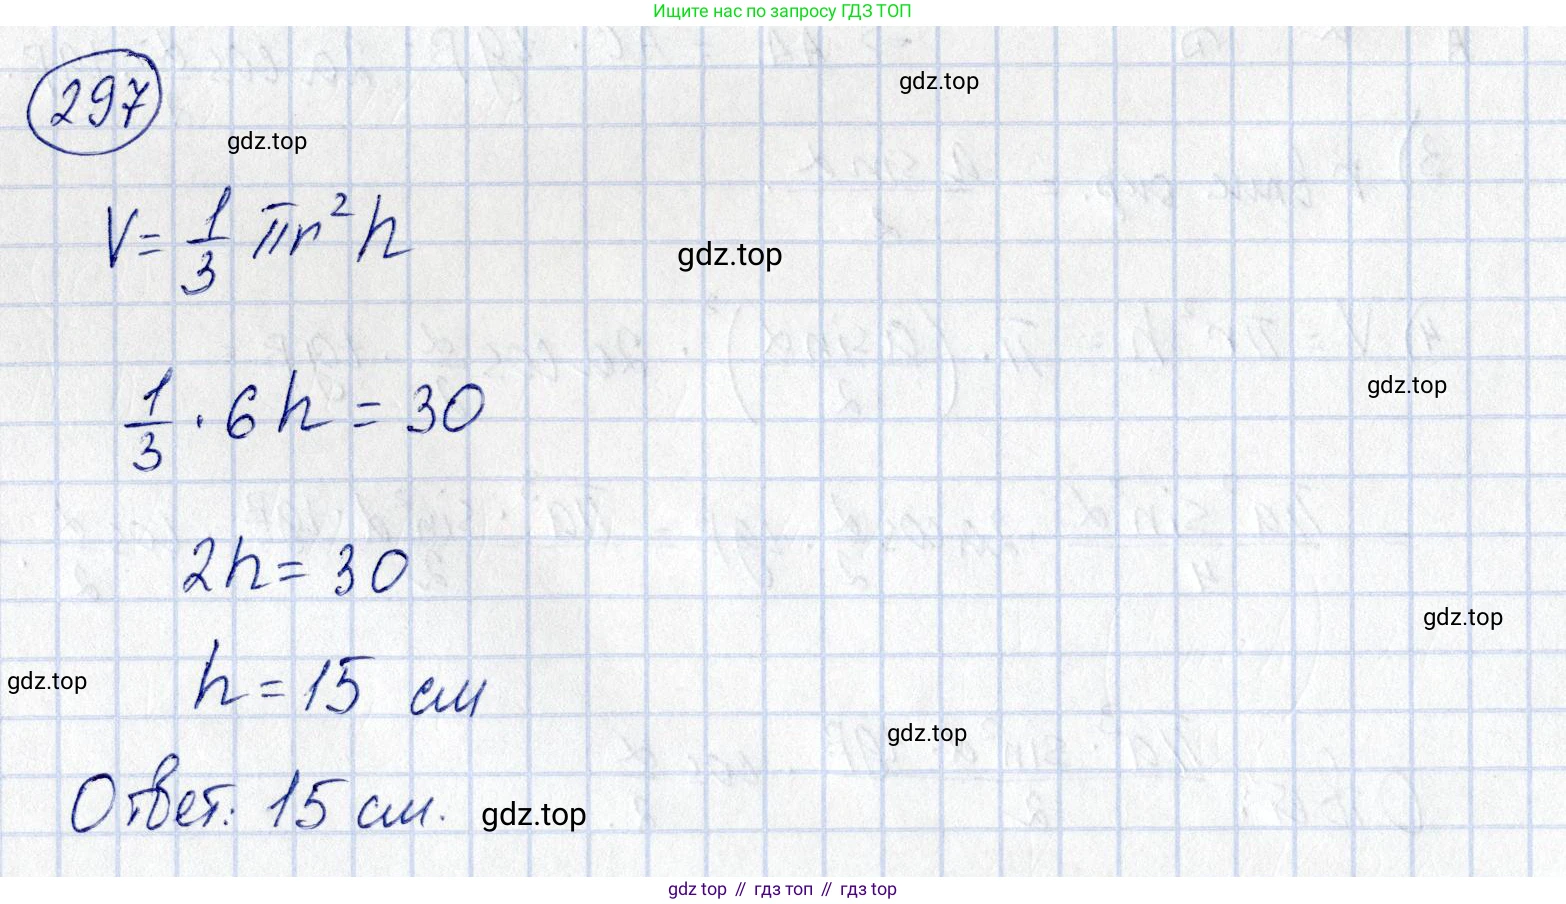 Ищите нас по запросу ГДЗ ТОП
gdz.top
297
gdz.top
V = 1/3 πr² h
gdz.top
1/3 · 6h = 30
gdz.top
2h = 30
gdz.top
h = 15 см
gdz.top
gdz.top
Ответ: 15 см.
gdz.top
gdz top // гдз топ // гдз top